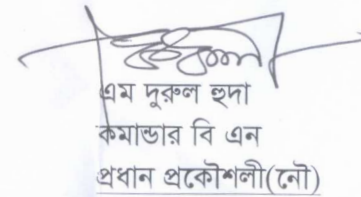 এম দুরুল হুদা
কমান্ডার বি এন
প্রধান প্রকৌশলী(নৌ)